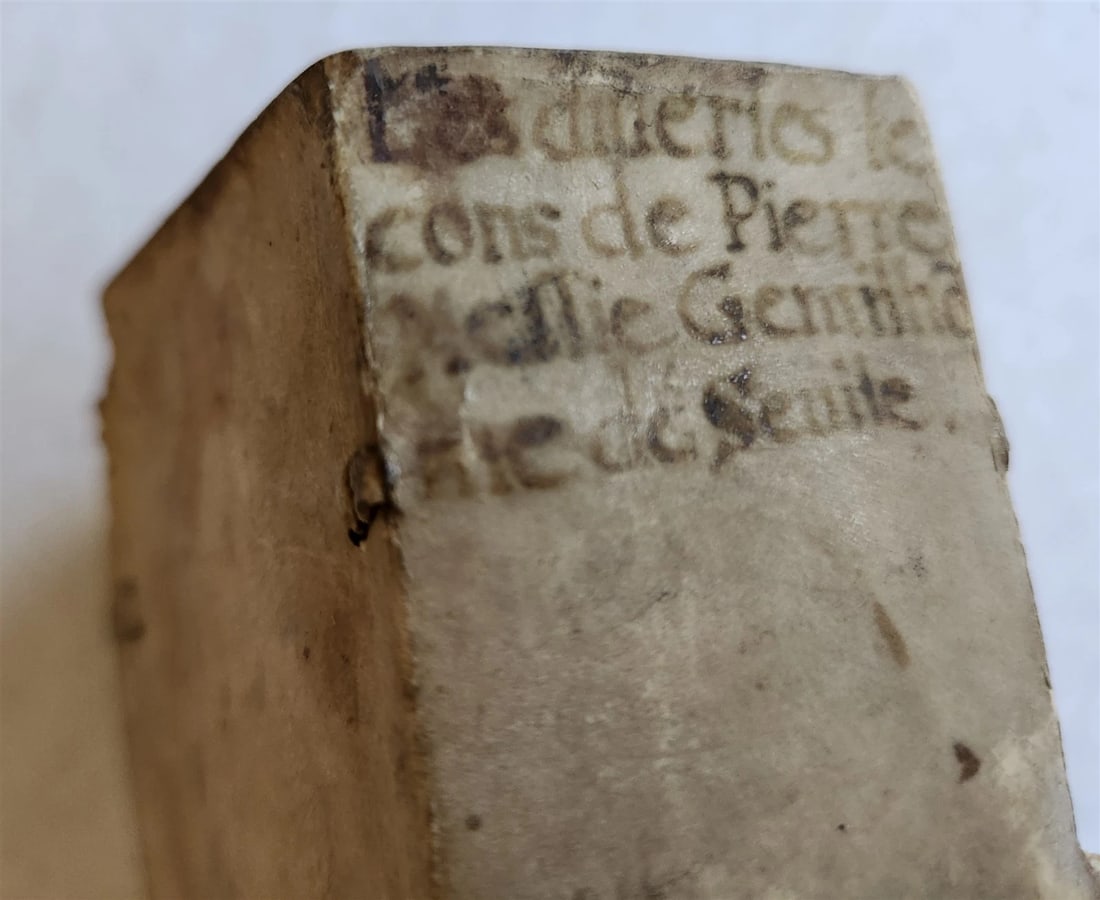 Les diuerses le
cons de Pierre
Messie Gentilhō
me de Seuile.